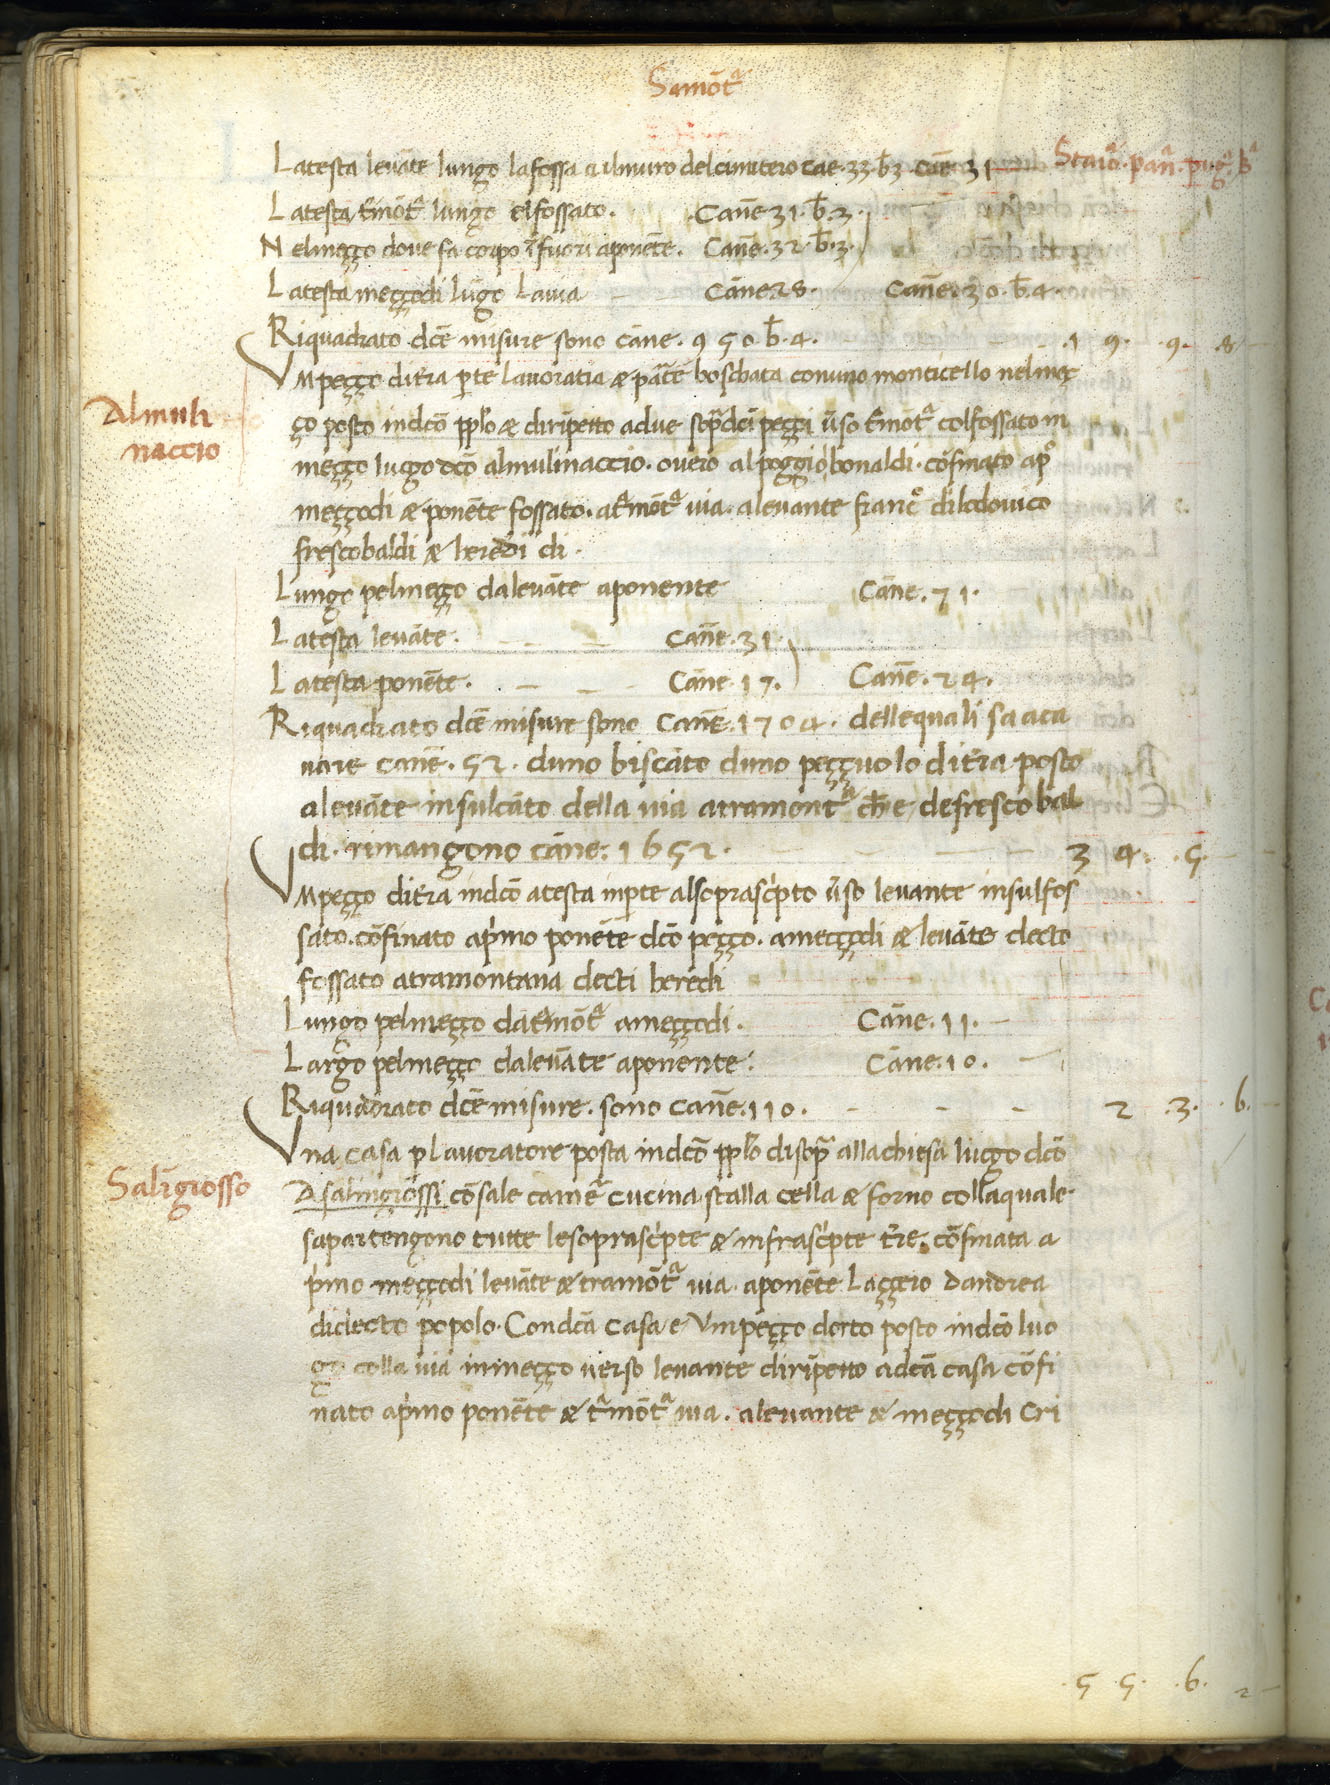 Samōtᵃ
Staiᵒ. panⁱ. pugⁱ. bⁱ
Latesta levāte lungo lafossa a ilmuro delcimitero cāe. 33. b̄3 canē 31
Latesta tᵃmōtᵃ lungo elfossato. Canē 31. b̄. 3.
Nelmeçço dove fa corpo ī fuori aponēte. Canē. 32. b̄. 3.
Latesta meççodi lūgo Lavia Cāne 28. Canē. 30. b̄. 4.
Riquadrato dcē misure sono cāne. 950 b̄. 4. 19. 9. 8
Almuli
naccio
Vmpeçço ditr̄a p̄te lavoratia & pāte boschata conuno monticello nelmeç
ço posto indcō pplo & dirīpetto adue sop̄ᵃdci peççi v̄so tᵃmōtᵃ colfossato in
meççо luogo dcō almulinaccio. overo alpoggio bonaldi. cōfinato apᵒ
meççodi & ponēte fossato. atᵃmōtᵃ via. alevante francᵒ dilodovico
frescobaldi & heredi di.
Lungo pelmeçço dalevāte aponente Cāne. 71.
Latesta levāte. Canē. 31.
Latesta ponēte. Cāne. 17. Canē. 24.
Riquadrato dcē misure sono Canē. 1704. dellequali sa aca
vare canē. 52. duno biscāto duno peççuolo ditr̄a posto
alevāte insulcāto della via atramontᵃ ch̄e defrescobal
di. rimangono cāne. 1652. 34. 5.
Vmpeçço ditr̄a indcō atesta inp̄te alsoprascⁱpto v̄so levante insulfos
sato. cōfinato apⁱmo ponēte dcō peçço. ameççodi & levāte decto
fossato atramontana decti heredi
Lungo pelmeçço datᵃmōtᵃ ameççodi. Cāne. 11.
Largo pelmeçço dalevāte aponente. Cāne. 10.
Riquadrato dcē misure. sono canē. 110. 2 .3. .6.
Salīgrosso
Vna casa p lavoratore posta indcō pplo disopᵃ allachiesa luogo dcō
Asalingrossi cō sale camēᵃ cucina stalla cella & forno collaquale
sapartengono tutte lesoprascⁱpte & infrascⁱpte tr̄re. cōfinata a
pⁱmo meççodi levāte & tramōtᵃ via. aponēte Laççero dandrea
didecto popolo. Condcā casa e Vmpeçço dorto posto indcō luo
go colla via inmeçço verso levante dirīpetto adcā casa cōfi
nato apⁱmo ponēte & tᵃmōtᵃ via. alevante & meççodi Cri
55. .6. 2